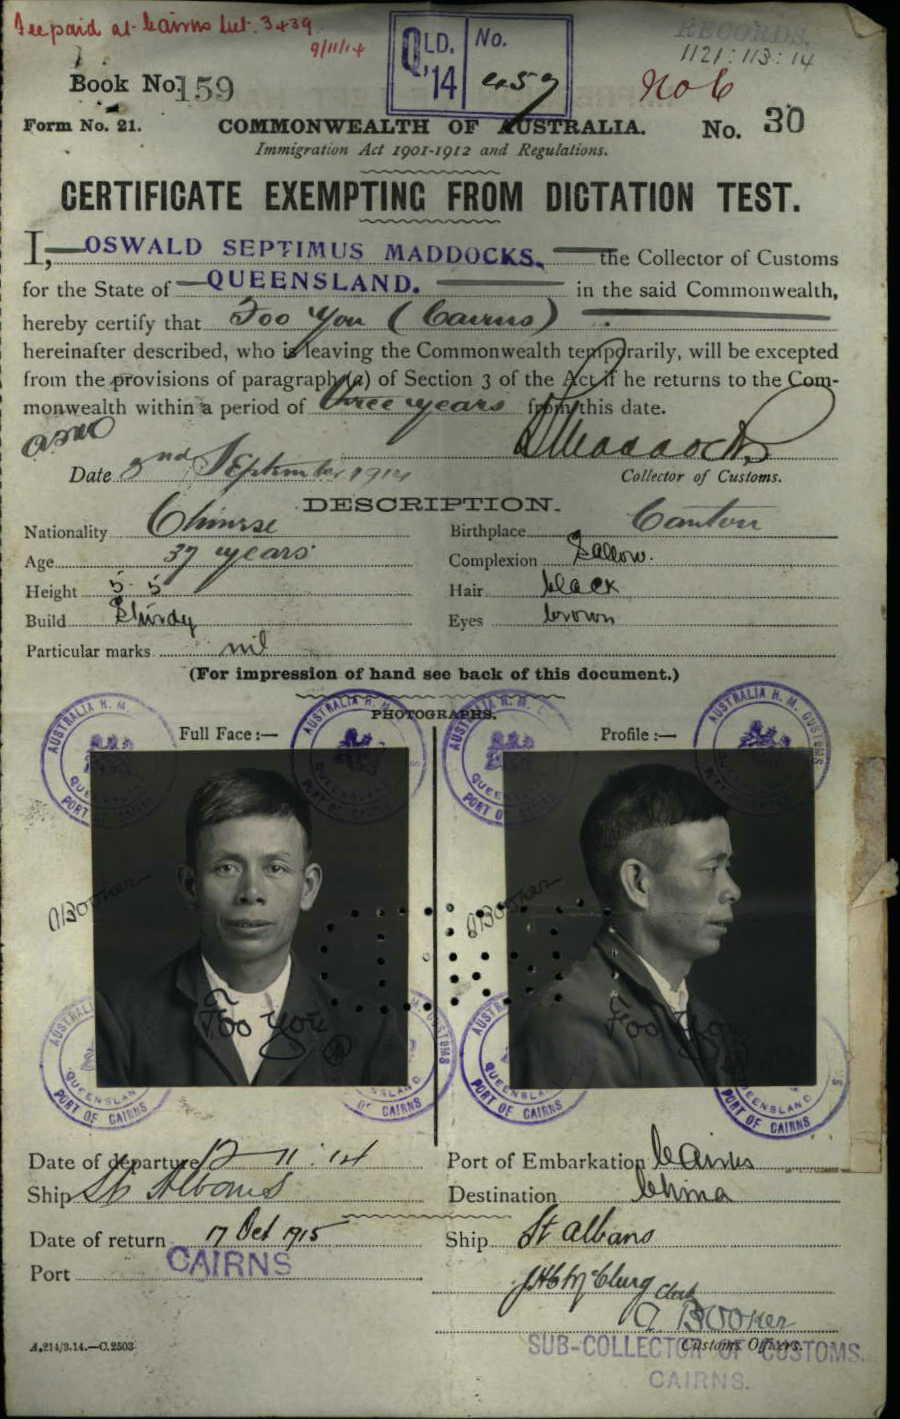 Fee paid at Cairns
9/11/14
RECORDS.
1121:113:14
QLD. No.
'14 459
No 6
Book No. 159
Form No. 21. COMMONWEALTH OF AUSTRALIA. No. 30
Immigration Act 1901-1912 and Regulations.
CERTIFICATE EXEMPTING FROM DICTATION TEST.
I, OSWALD SEPTIMUS MADDOCKS, the Collector of Customs
for the State of QUEENSLAND. in the said Commonwealth,
hereby certify that Foo You (Cairns)
hereinafter described, who is leaving the Commonwealth temporarily, will be excepted
from the provisions of paragraph (a) of Section 3 of the Act if he returns to the Com-
monwealth within a period of three years from this date.
Date 2nd September 1914 Collector of Customs.
DESCRIPTION.
Nationality Chinese Birthplace Canton
Age 37 years Complexion Sallow.
Height 5 5 Hair black
Build Sturdy Eyes brown
Particular marks nil
(For impression of hand see back of this document.)
PHOTOGRAPHS.
Full Face:— Profile:—
AUSTRALIA H. M. CUSTOMS
QUEENSLAND
PORT OF CAIRNS
A Booker A Booker
Foo You Foo You
Date of departure 12 11 14 Port of Embarkation Cairns
Ship St Albans Destination China
Date of return 17 Oct 1915 Ship St Albans
Port CAIRNS
J H McClurg Clerk
A Booker
Customs Officers.
SUB-COLLECTOR OF CUSTOMS.
CAIRNS.
A.214/3.14.—C.2503